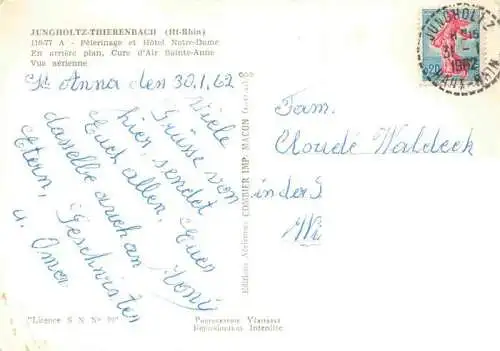 JUNGHOLTZ-THIERENBACH (Ht-Rhin)
118-77 A - Pèlerinage et Hôtel Notre-Dame
En arrière plan, Cure d'Air Sainte-Anne
Vue aérienne
St Anna den 30.1.62
Viele
Grüsse von
hier, sendet
Euch allen, Euer
Toni
dasselbe auch an
Eltern, Geschwister
u. Oma
Editions Aériennes COMBIER IMP. MACON
"Licence S N N° 99"
Photographie Véritable
Reproduction Interdite
JUNGHOLTZ
1962
HAUT-RHIN
0,20
Fam.
Claudé Waldeck
in der S
Wi